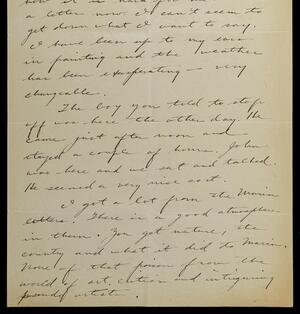 how it is hard for me
a letter now & I can't seem to
get down what I want to say.
I have been up to my ears
in painting and the weather
has been exasperating — very
changeable.
The boy you told to stop
off was here the other day. He
came just after noon and
stayed a couple of hours. John
was here and we sat and talked.
He seemed a very nice sort.
I got a lot from the Marin
letters. There is a good atmosphere
in them. You get nature, the
country and what it did to Marin.
None of that poison from the
world of art, critics and intriguing
pseudo artists.